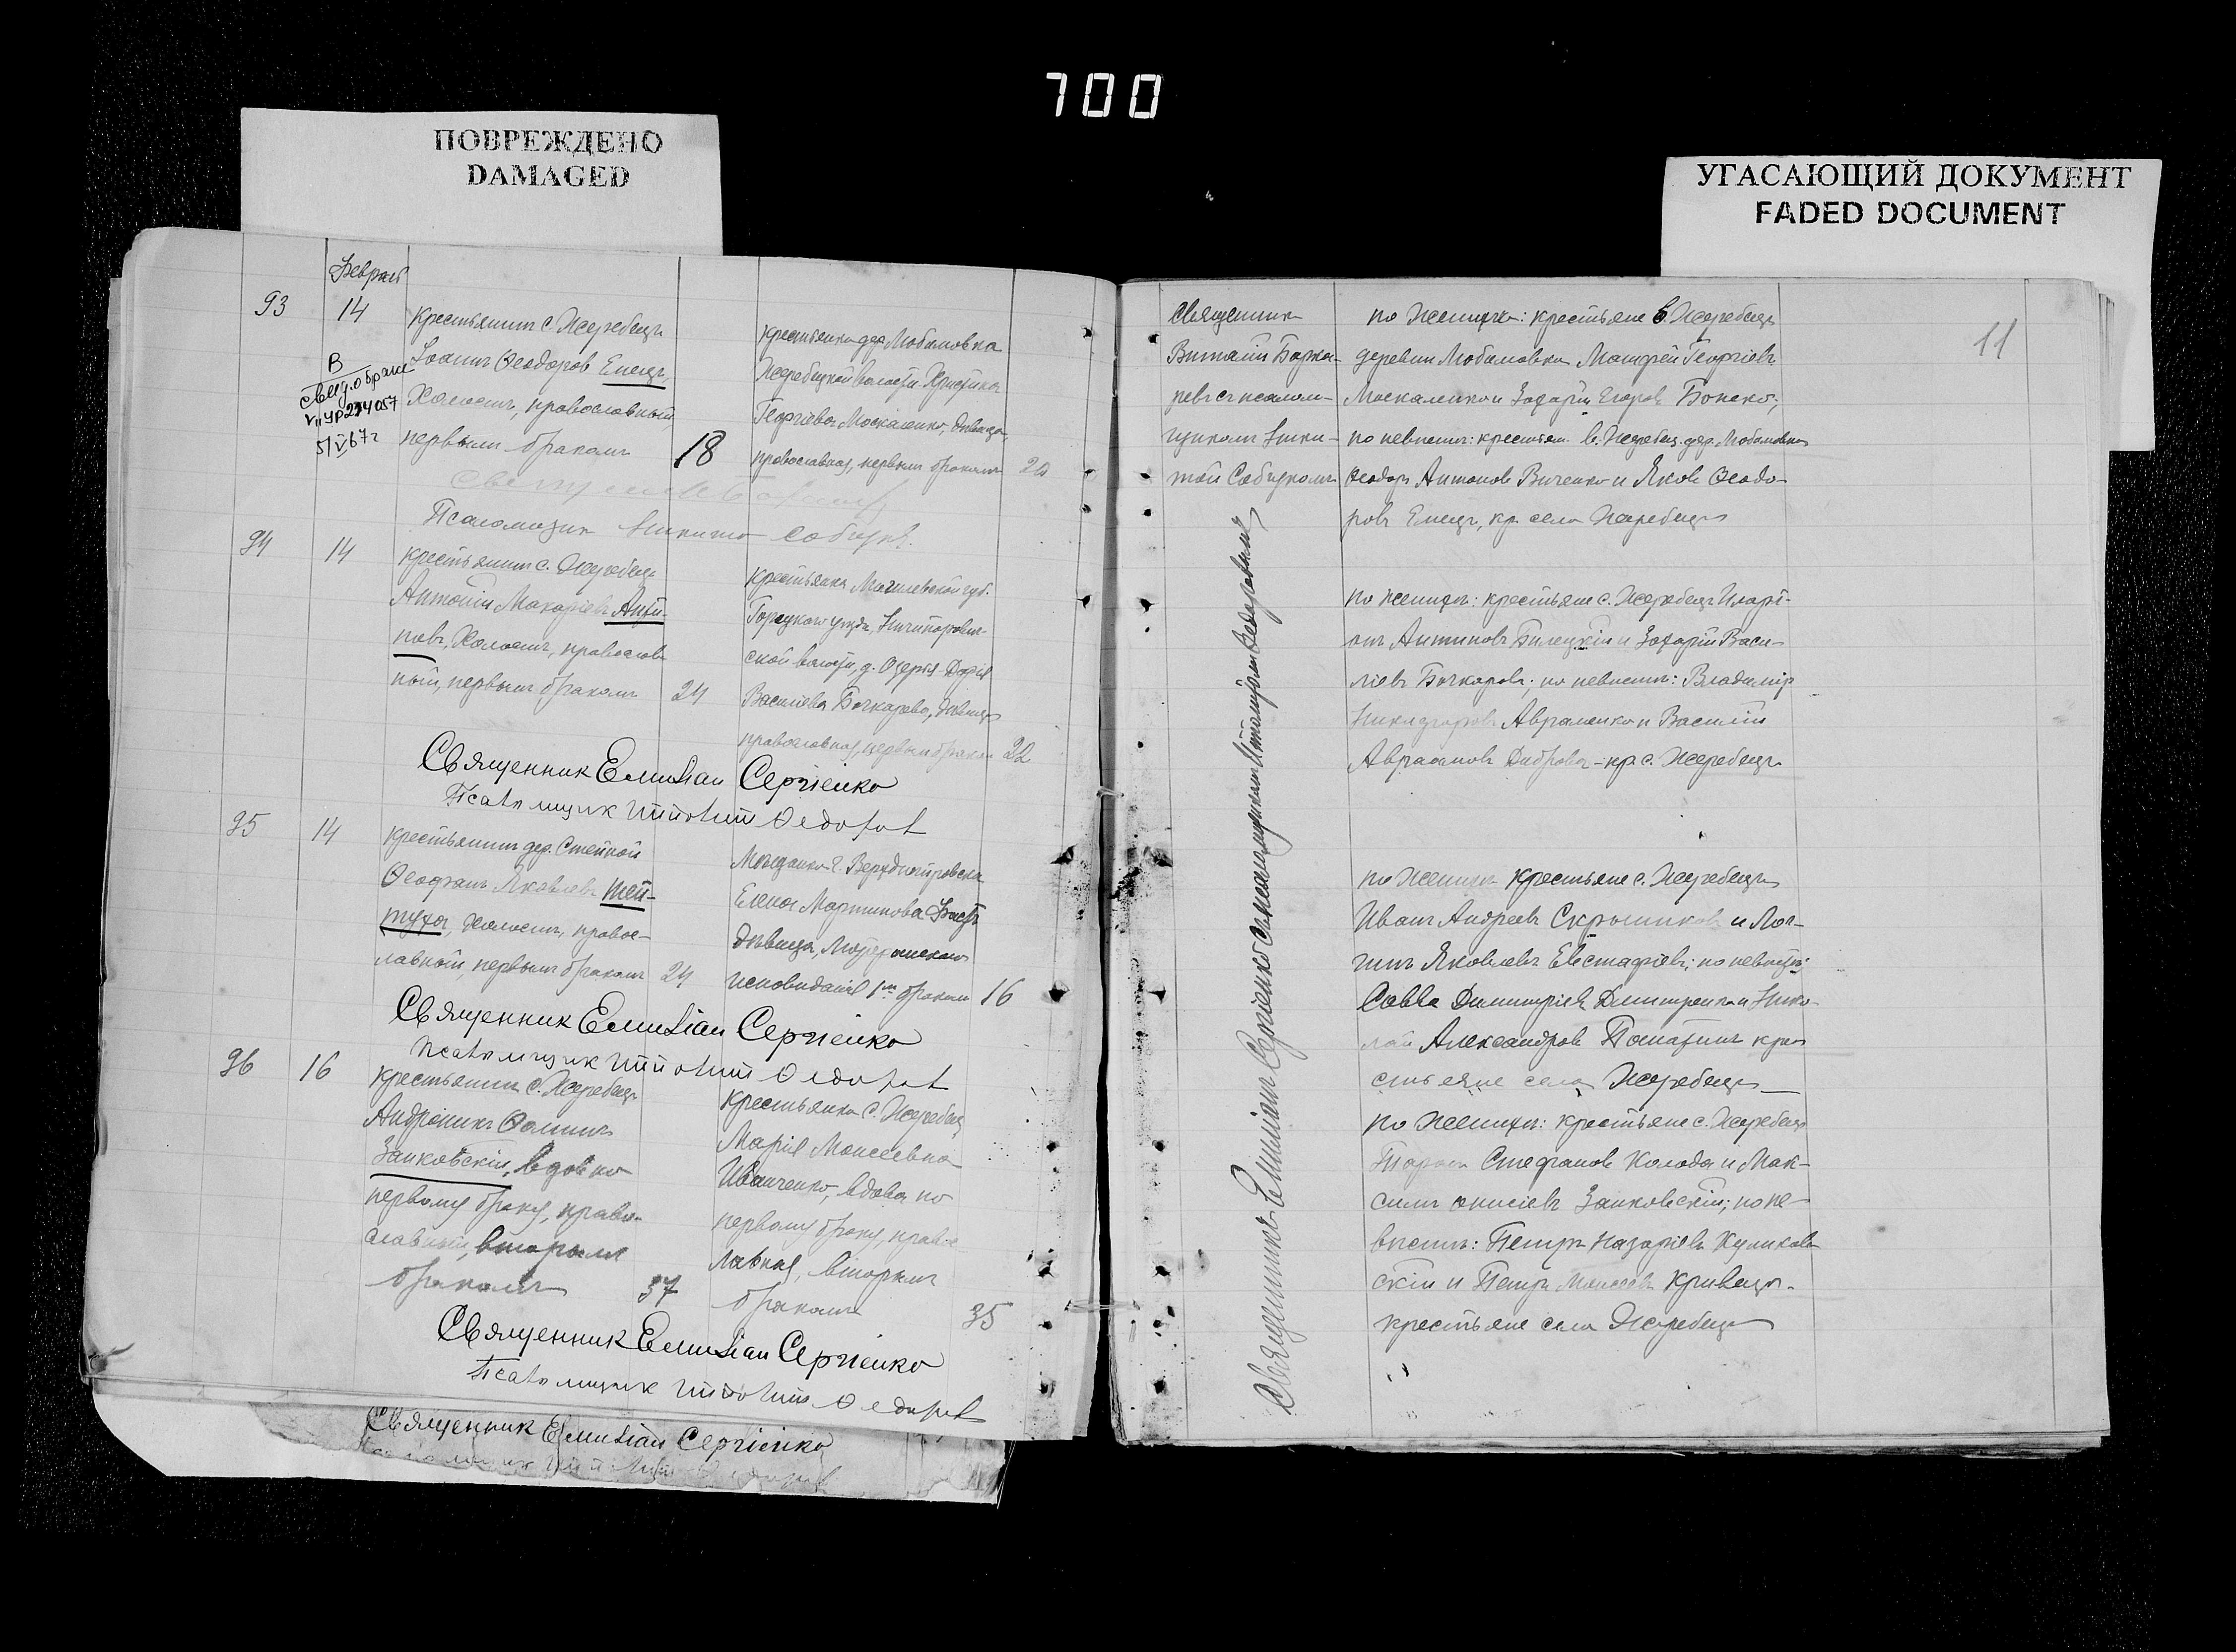 700
ПОВРЕЖДЕНО
DAMAGED
УГАСАЮЩИЙ ДОКУМЕНТ
FADED DOCUMENT
93
Февраль
14
В
свид. о браке
VII УР 274057
5/V 67 г
крестьянинъ с. Жеребецъ
Іоаннъ Ѳеодоровъ Емецъ,
Холостъ, православный,
первымъ бракомъ
18
крестьянка дер. Любимовка
Жеребецкой волости Христина
Георгіева Москаленко, дѣвица,
православная, первымъ бракомъ
20
Псаломщик Никита Собцковъ
94
14
крестьянинъ с. Жеребецъ
Антоній Макаріевъ
Холостъ, православ
ный, первымъ бракомъ
24
крестьянка Могилевской губ.
Горецкаго уѣзда,
ской волости, д. Озерья Дарія
Васильева Бочкарева, дѣвица
православная, первымъ бракомъ
22
Священник Емилian Сергіенко
Псаломщик Ѳедоров
95
14
крестьянинъ дер. Степной
Ѳеофанъ Яковлевъ Шей-
туха, холостъ, правос-
лавный, первымъ бракомъ
24
Мѣщанка г. Верхднѣпровска
Елена Мартинова
дѣвица, Лютеранскаго
исповѣданія 1мъ бракомъ
16
Священник Емилian Сергіенко
Псаломщик Ѳедоров
96
16
крестьянинъ с. Жеребецъ
Андроникъ Ѳоминъ
Заиковскій, вдов по
первому браку, право-
славный, вторымъ
бракомъ
37
крестьянка с. Жеребец
Марія Моисеевна
Иванченко, вдова по
первому браку, правос
лавная, вторымъ
бракомъ
35
Священник Емилian Сергіенко
Псаломщик Ѳедоров
Священник Емилian Сергіенко
Священникъ
Виталій Боржа-
псалом-
щикомъ Ники-
той Собцкомъ
Священникъ Емиліанъ Сергіенко съ псаломщикомъ Ипполитомъ Ѳедоровымъ
11
по женихѣ: крестьяне в. Жеребецъ
деревни Любимовки Матфей Георгіевъ
Москаленко и Захарій Егоровъ Бонско;
по невѣстѣ: крестьян. в. Жеребец. дер. Любимовка
Ѳеодоръ Антоновъ Виченко и Яковъ Ѳеодо-
ровъ Емецъ, кр. села Жеребецъ
по женихѣ: крестьяне с. Жеребецъ Иларі-
онъ Антиповъ Билецкій и Захарій Васи-
ліевъ Бочкаровъ; по невѣстѣ: Владиміръ
Никифоровъ Авраменко и Василій
Авраамовъ Диброва - кр. с. Жеребецъ
по женихѣ крестьяне с. Жеребецъ
Иванъ Андреевъ Скрыпниковъ и Лог-
гинъ Яковлевъ Евстафіевъ; по невѣстѣ:
Савва Димитріевъ Дмитренко и Нико-
лай Александровъ кре
стьяне села Жеребецъ
по женихѣ: крестьяне с. Жеребецъ
Тарасъ Стефановъ Колода и Мак-
симъ Заиковскій; по не-
вѣстѣ: Петръ Назаріевъ Куликов
скій и Петръ Моисеевъ Кривецъ-
крестьяне села Жеребецъ